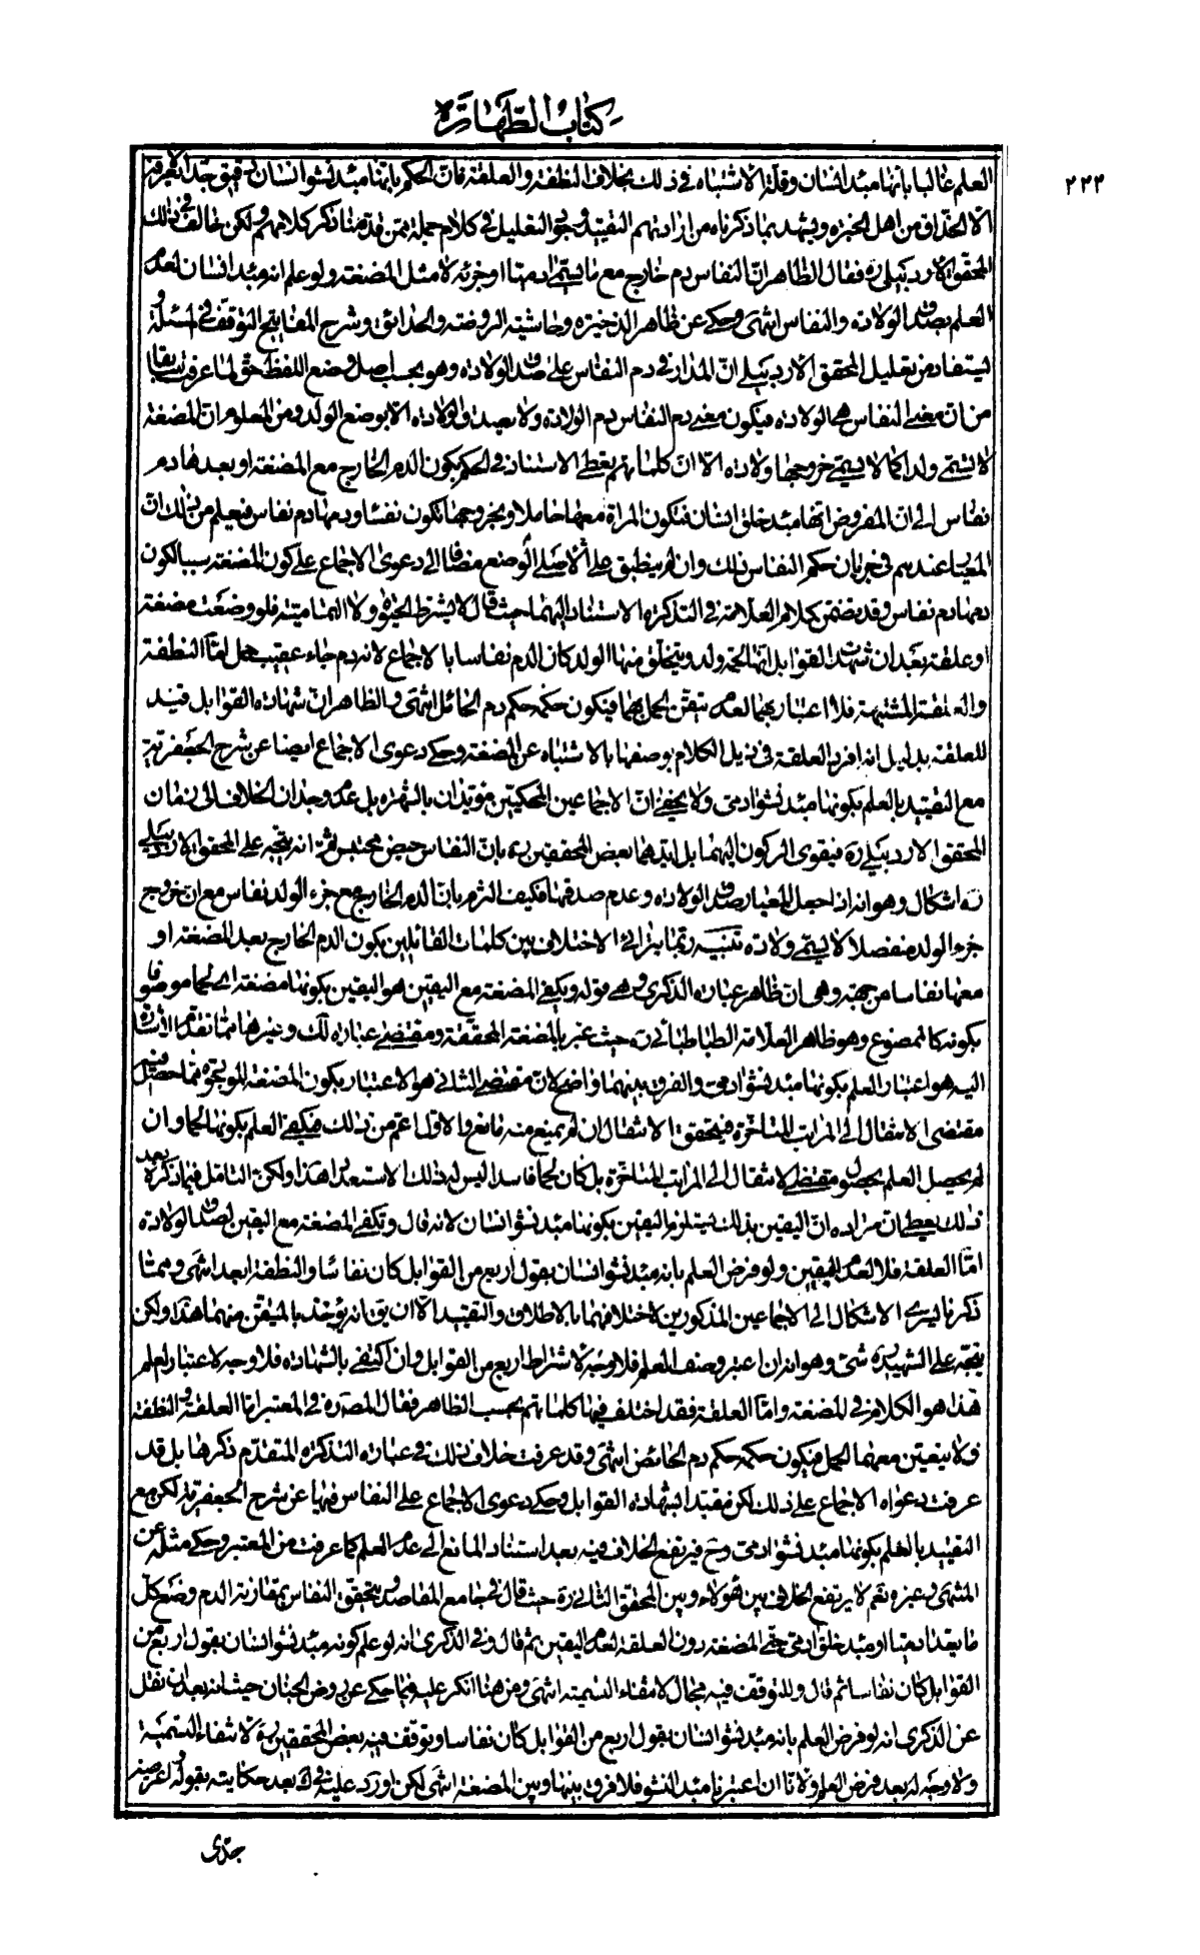 كتاب الطهارة
٢٢٢
العلم غالبا بانها مبدء انسان وقلة الاشتباه في ذلك بخلاف النطفة والعلقة فان الحكم بانهما مبدء نشو انسان دقيق جدا لا يعرفه
الا الحذاق من اهل الخبرة ويشهد بما ذكرناه من ارادتهم التقييد التعليل في كلام جملة ممن قدمنا ذكر كلامهم ولكن خالف في ذلك
المحقق الاردبيلي ره فقال الظاهر ان النفاس دم خارج مع ما يسمى ادميا او جزئه لا مثل المضغة ولو علم انه مبدء انسان لعدم
العلم بصدق الولادة والنفاس انتهى وحكى عن ظاهر الذخيرة وحاشية الروضة والحدائق وشرح المفاتيح التوقف في المسئلة و
يستفاد من تعليل المحقق الاردبيلي ان المدار في دم النفاس على صدق الولادة وهو بحسب اصل وضع اللفظ حق لما عرفت سابقا
من ان معنى النفاس هي الولادة فيكون معنى دم النفاس دم الولادة ولا يصدق الولادة الا بوضع الولد ومن المعلوم ان المضغة
لا تسمى ولدا كما لا يسمى خروجها ولادة الا ان كلماتهم يعطى الاستناد في الحكم بكون الدم الخارج مع المضغة او بعدها دم
نفاس الى ان المفروض انها مبدء خلق انسان فتكون المراة معها حاملا وبخروجها تكون نفساء ودمها دم نفاس فيعلم من ذلك ان
المعيار عندهم في جريان حكم النفاس ذلك وان لم ينطبق على الاصلى الوضع مضافا الى دعوى الاجماع على كون المضغة سببا لكون
دمها دم نفاس وقد تضمن كلام العلامة في التذكرة الاستناد اليهما حيث قال لا يشترط الحيوة ولا التمامية فلو وضعت مضغة
او علقة بعد ان شهدت القوابل انها لحمة ولد ويتخلق منها الولد كان الدم نفاسا بالاجماع لانه دم جاء عقيب حمل امّا النطفة
والعلقة المشتبهة فلا اعتبار بهما لعدم تيقن الحمل بهما فيكون حكمه حكم دم الحائل انتهى والظاهر ان شهادة القوابل قيد
للعلقة بدليل انه افرد العلقة في ذيل الكلام بوصفها بالاشتباه عن المضغة وحكى دعوى الاجماع ايضا عن شرح الجعفرية
مع التقييد بالعلم بكونها مبدء نشو ادمى ولا يخفى ان الاجماعين المحكيين مؤيدان بالشهرة بل عدم وجدان الخلاف الى زمان
المحقق الاردبيلي ره فيقوى الركون اليهما بل ايدهما بعض المحققين ره بان النفاس حيض محتبس ثم انه يتجه على المحقق الاردبيلي
ره اشكال وهو انه اذا جعل المعيار صدق الولادة وعدم صدقها فكيف التزم بان الدم الخارج مع جزء الولد نفاس مع ان خروج
جزء الولد منفصلا لا يسمى ولادة تنبيه ربما يتراءى الاختلاف بين كلمات القائلين بكون الدم الخارج بعد المضغة او
معها نفاسا من جهة وهى ان ظاهر عبارة الذكرى وهي قوله ويكفى المضغة مع اليقين هو اليقين بكونها مضغة اي لحما موصوفا
بكونه كالممضوغ وهو ظاهر العلامة الطباطبائى ره حيث عبر بالمضغة المحققة ومقتضى عبارة لك وغيرها مما تقدم الاشارة
اليه هو اعتبار العلم بكونها مبدء نشو ادمى والفرق بينهما واضح لان مقتضى الثانى هو الاعتبار بكون المضغة الموجودة مما حصل فيه
مقتضى الانتقال الى المراتب المتاخرة فيتحقق الانتقال ان لم يمنع منه مانع والاول اعم من ذلك فيكفى العلم بكونها لحما وان
لم يحصل العلم بحصول مقتضى الانتقال الى المراتب المتاخرة بل كان لحما فاسدا ليس له ذلك الاستعداد هذا ولكن التامل فيما ذكره بعد
ذلك يعطى ان مراده ان اليقين بذلك يستلزم اليقين بكونها مبدء نشو انسان لانه قال وتكفى المضغة مع اليقين لصدق الولادة
امّا العلقة فلا لعدم اليقين ولو فرض العلم بانه مبدء نشو انسان بقول اربع من القوابل كان نفاسا والنطفة ابعد انتهى ومما
ذكرنا يسرى الاشكال الى الاجماعين المذكورين لاختلافهما بالاطلاق والتقييد الا ان يق انه يؤخذ بالمتيقن منهما هذا ولكن
يتجه على الشهيد ره شئ وهو انه ان اعتبر وصف العلم فلا وجه لاشتراط اربع من القوابل وان اكتفى بالشهادة فلا وجه لاعتبار العلم
هذا هو الكلام في المضغة وامّا العلقة فقد اختلف فيها كلماتهم بحسب الظاهر فقال المصره في المعتبر امّا العلقة والنطفة
فلا يتيقن معهما الحمل فيكون حكمه حكم دم الحائض انتهى وقد عرفت خلاف ذلك في عبارة التذكرة المتقدم ذكرها بل قد
عرفت دعواه الاجماع على ذلك لكن مقيدا بشهادة القوابل وحكى دعوى الاجماع على النفاس فيها عن شرح الجعفرية لكن مع
التقييد بالعلم بكونها مبدء نشو ادمى وح فيرتفع الخلاف فيه بعد استناد المانع الى عدم العلم كما عرفت من المعتبر وحكى مثله عن
المنتهى وغيره نعم لا يرتفع الخلاف بين هؤلاء وبين المحقق الثانى ره حيث قال في جامع المقاصد ويتحقق النفاس بمقارنة الدم وضع كل
ما يعد ادميا او مبدء خلق ادمى حتى المضغة دون العلقة لعدم اليقين ثم قال وفي الذكرى انه لو علم كونه مبدء نشو انسان بقول اربع من
القوابل كان نفاسا ثم قال وللتوقف فيه مجال لانتفاء التسمية انتهى ومن هنا انكر عليه فيما حكى عن روض الجنان حيث انه بعد ان نقل
عن الذكرى انه لو فرض العلم بانه مبدء نشو انسان بقول اربع من القوابل كان نفاسا وتوقف فيه بعض المحققين ره لانتفاء التسمية
ولا وجه له بعد فرض العلم ولانا ان اعتبرنا مبدء النشو فلا فرق بينها وبين المضغة انتهى لكن اورد عليه في لك بعد حكايته بقوله اعرضه
جدى